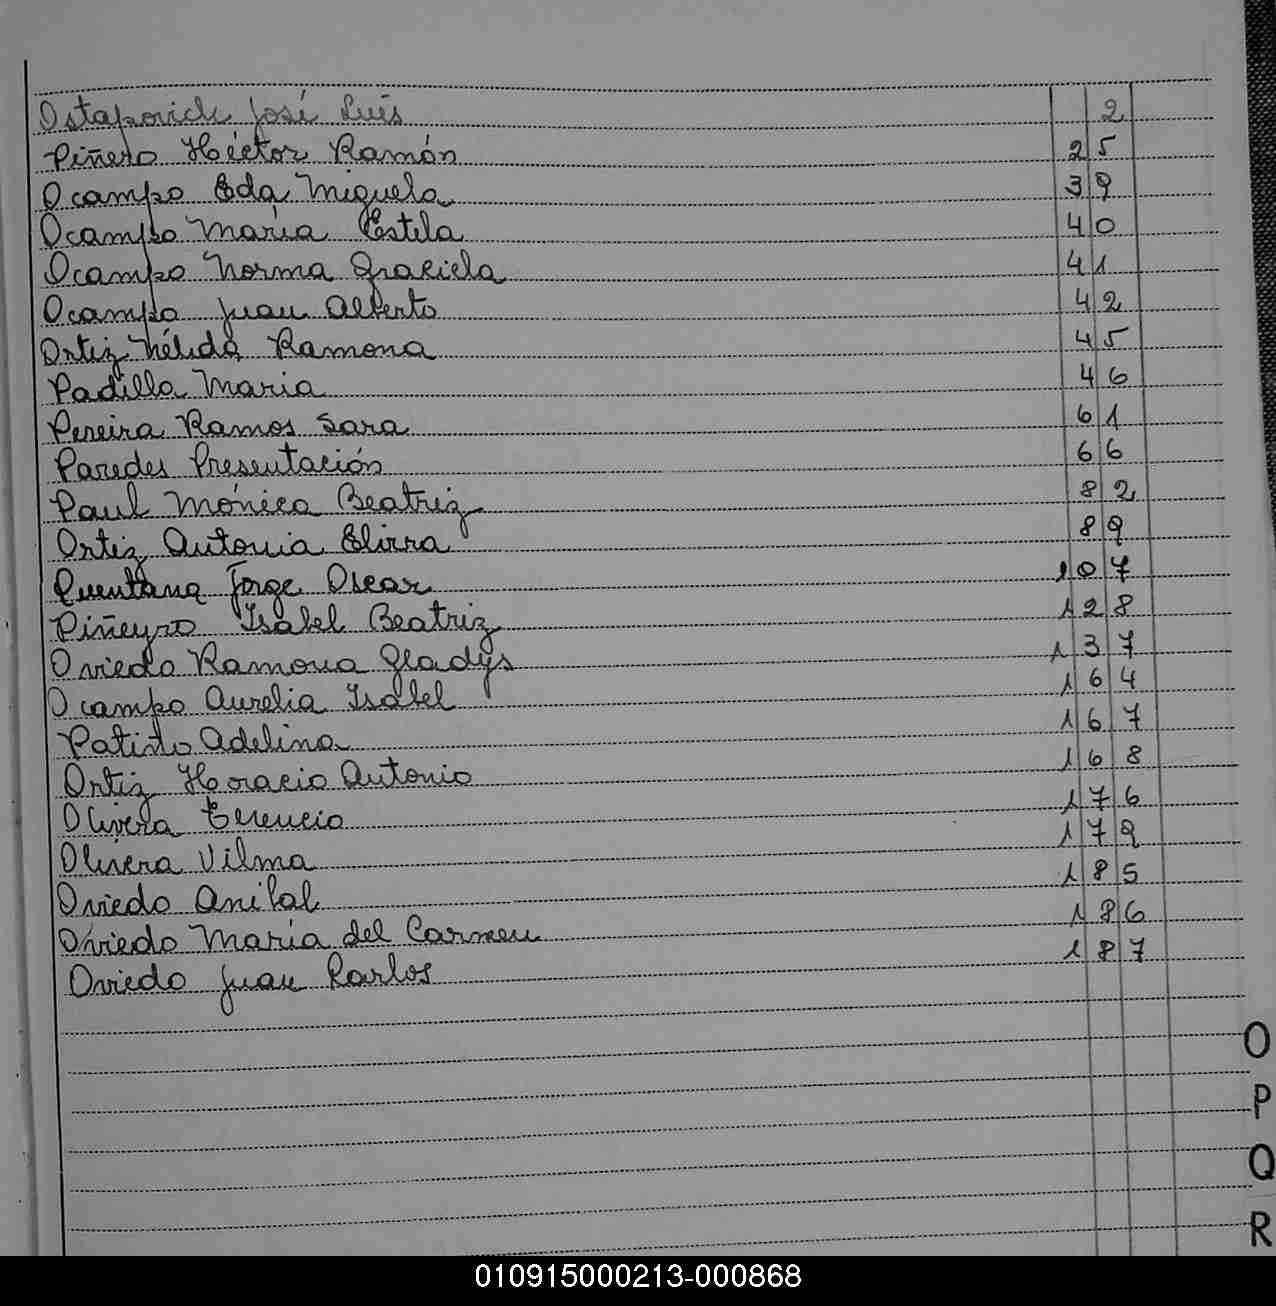 Ostapovich José Luis 2
Piñero Héctor Ramón 25
Ocampo Eda Miguela 39
Ocampo María Estela 40
Ocampo Norma Graciela 41
Ocampo Juan Alberto 42
Ortiz Nélida Ramona 45
Padilla Maria 46
Pereira Ramos Sara 61
Paredes Presentación 66
Paul Mónica Beatriz 82
Ortiz Antonia Elvira 89
Quintana Jorge Oscar 107
Piñeyro Isabel Beatriz 128
Oviedo Ramona Gladys 137
Ocampo Aurelia Isabel 164
Patiño Adelina 167
Ortiz Horacio Antonio 168
Olivera Terencio 176
Olivera Vilma 179
Oviedo Anibal 185
Oviedo María del Carmen 186
Oviedo Juan Carlos 187
O
P
Q
R
010915000213-000868